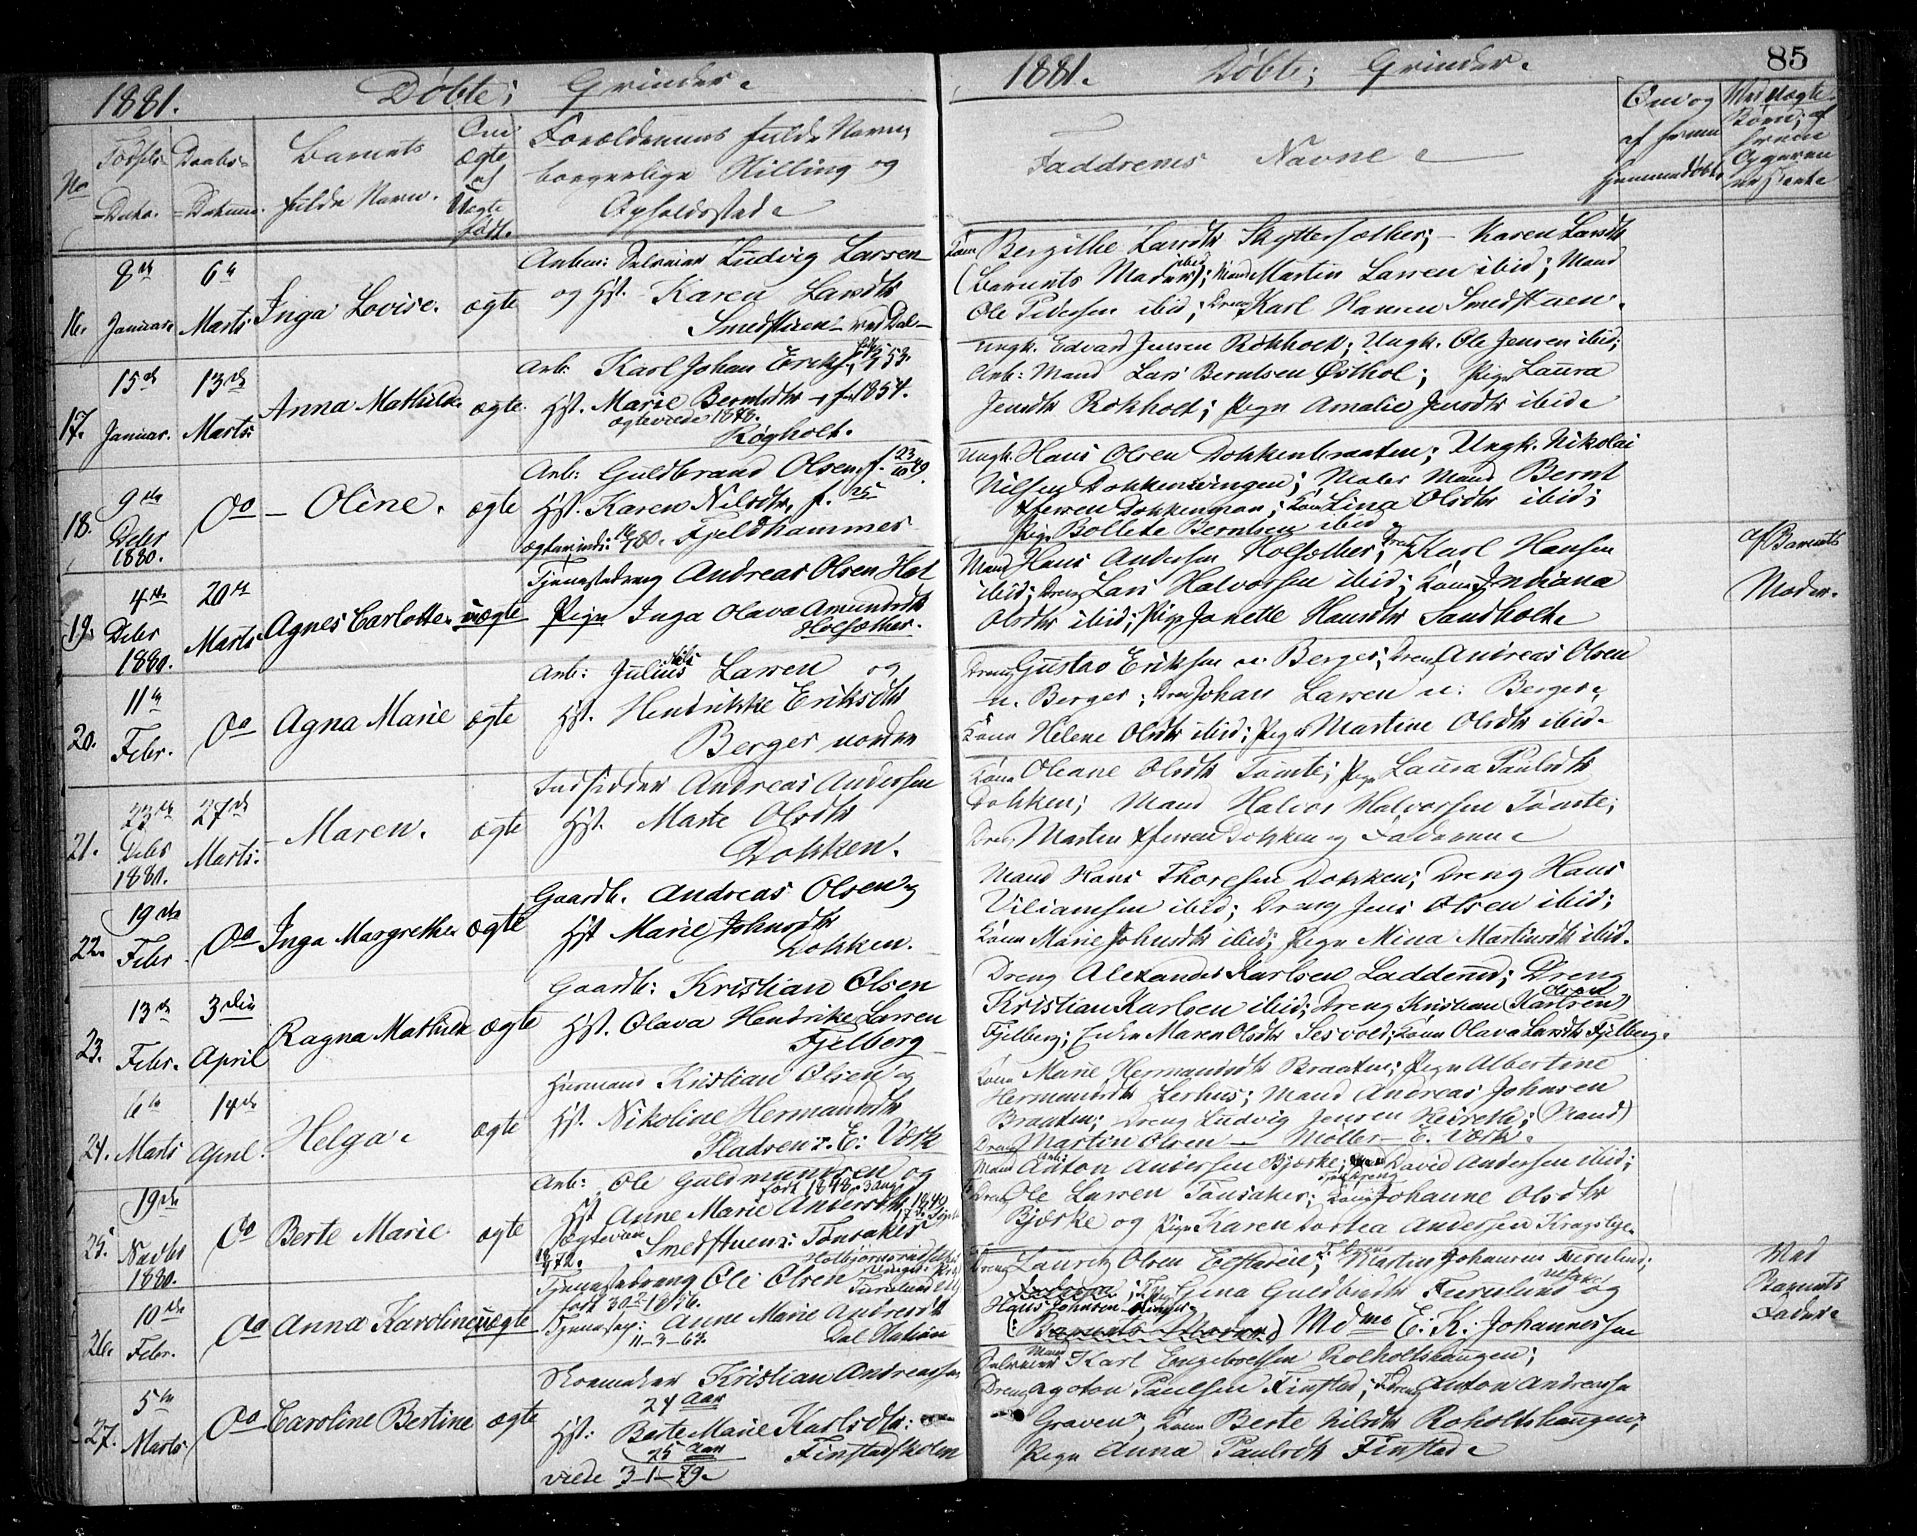 1881.
Døbte; Grinder.
No
Fødsels-Dato.
Daabs-Datum.
Barnets fulde Navn.
Om ægte el Uægte født.
Forældrenes fulde Navn, borgerlige Stilling og Opholdssted
16.
8de Januar.
6te Marts.
Inga Lovise.
ægte
Arben: Selveier Ludvig Larsen
og Hst. Karen Larsdtr
Smedstuen
17.
15de Januar.
13de Marts.
Anna Mathilde
ægte.
Arb: Karl Johan Eriks.
Hst. Marie Berntsdtr f. 1854.
ægteviede 1878.
Røgholt.
18.
9de Debr 1880.
Do
Oline.
ægte
Arb: Guldbrand Olsen, f. 23
Hst. Karen Nilsdtr, f. 25
Fjeldhammer
19.
4de Debr 1880.
20de Marts
Agnes Carlotte.
uægte
Tjenestedreng Andreas Olsen Hol
Pige Inga Olava Amundsdtr
Holsæther.
20.
11te Febr.
Do
Agna Marie
ægte
Arb: Julius Larsen og
Hst. Hendrikke Eriksdtr
Berger nordre
21.
23de Debr 1880.
27de Marts.
Maren.
ægte
Indsidder Andreas Andersen
Hst. Marte Olsdtr
Dokken.
22.
19de Febr.
Do
Inga Margrethe
ægte
Gaardb. Andreas Olsen og
Hst Marie Johnsdtr
Dokken.
23.
13de Febr.
3die April
Ragna Mathilde
ægte
Gaardb: Kristian Olsen
Hst. Olava Hendrike Larsen
Fjelberg
24.
6te Marts
14de April.
Helga.
ægte
Huusmand Kristian Olsen og
Hst. Nikoline Hermansdtr
Pladsen v. E: Værk
25.
19de Novbr 1880.
Do
Berte Marie
ægte
Arb: Ole Guldmundsen og
født 1848, 3 aug
Hst Anne Marie Andersdtr, 1849
Smedstuen: Tonsaker
26.
10de Febr.
Do
Anna Karoline
uægte
Tjenestedreng Ole Olsen Furulund
født 30 1856.
Tjenestep: Anne Marie Andersdtr
11-3-62. Dal Station
27.
5te Marts
Do
Caroline Bertine
ægte
Skomaker Kristian Andreassen
24 Aar
Hst: Berte Marie Karlsdtr:
25 Aar Finstadskolen
viede 3-1-79.
1881. Døbte; Grinder.
85
Faddrenes Navne
Om og af hvem hjemmedøbt.
Ved Uægte Børn; af hvem Opgaven er skeet
Kone Bergithe Larsdtr Skyttersæther; Karen Larsdtr
(Barnets Moder) ibid; Mand Martin Larsen ibid; Mand
Ole Pedersen ibid; Dreng Karl Hansen Smedstuen.
Ungk. Edvard Jensen Rokholt; Ungk. Ole Jensen ibid;
Arb: Mand Lars Berntsen Østhol; Pige Laura
Jensdtr Rokholt; Pige Amalie Jensdtr ibid
Ungk. Hans Olsen Dokkenbraaten; Ungk. Nikolai
Nilsen Dokkenvingen; Maler Mand Bernt
Iversen Dokkenmoen; Kone Lina Olsdtr ibid;
Pige Bollete Berntsen ibid
Mand Hans Andersen Holsæther; Dreng Karl Hansen
ibid; Dreng Lars Halvorsen ibid; Kone Indiana
Olsdtr ibid; Pige Janette Hansdtr Sandholt
af Barnets Moder.
Dreng Gustav Eriksen n. Berger; Dreng Andreas Olsen
n. Berger; Dreng Johan Larsen n. Berger
Kone Helene Olsdtr ibid; Pige Martine Olsdtr ibid.
Kone Oleane Olsdtr Tomte; Pige Laura Paulsdtr
Dokken; Mand Halvor Halvorsen Tomte;
Dreng Martin Iversen Dokken og Faderen
Mand Hans Thoresen Dokken; Dreng Hans
Viliamsen ibid; Dreng Jens Olsen ibid;
Kone Marie Johnsdtr ibid; Pige Mina Martinsdtr ibid.
Dreng Alexander Karlsen Laddenud; Dreng
Kristian Karlsen ibid; Dreng Kristian (Karlsen) Olsen
Fjelberg; Enke Maren Olsdtr Sesvold; Kone Olava Larsdtr Fjelberg.
Kone Marie Hermansdtr Braaten; Pige Albertine
Hermansdtr Lerhus; Mand Andreas Johnsen
Braaten; Dreng Ludvig Jensen; (Mand)
Dreng Martin Olsen Møller E. Værk.
Mand Anton Andersen Bjørke; David Andersen ibid;
Dreng Ole Larsen Tonsaker; Kone Johanne Olsdtr
Bjørke og Pige Karen Dortea Andersen
Dreng Lauritz Olsen; Martin Johansen
Pige Gina Guldbrdsdtr Furulund og
Hans Johnsen
(Barnets Moder) Mdme E. K. Johannessen
Ved Barnets Fader
Selveier Mand Karl Engebretsen Rolholtshaugen;
Dreng Agoton Paulsen Finstad; Dreng Anton Andreassen
Graven; Kone Berte Nilsdtr Roholtshaugen;
Pige Anna Paulsdtr Finstad